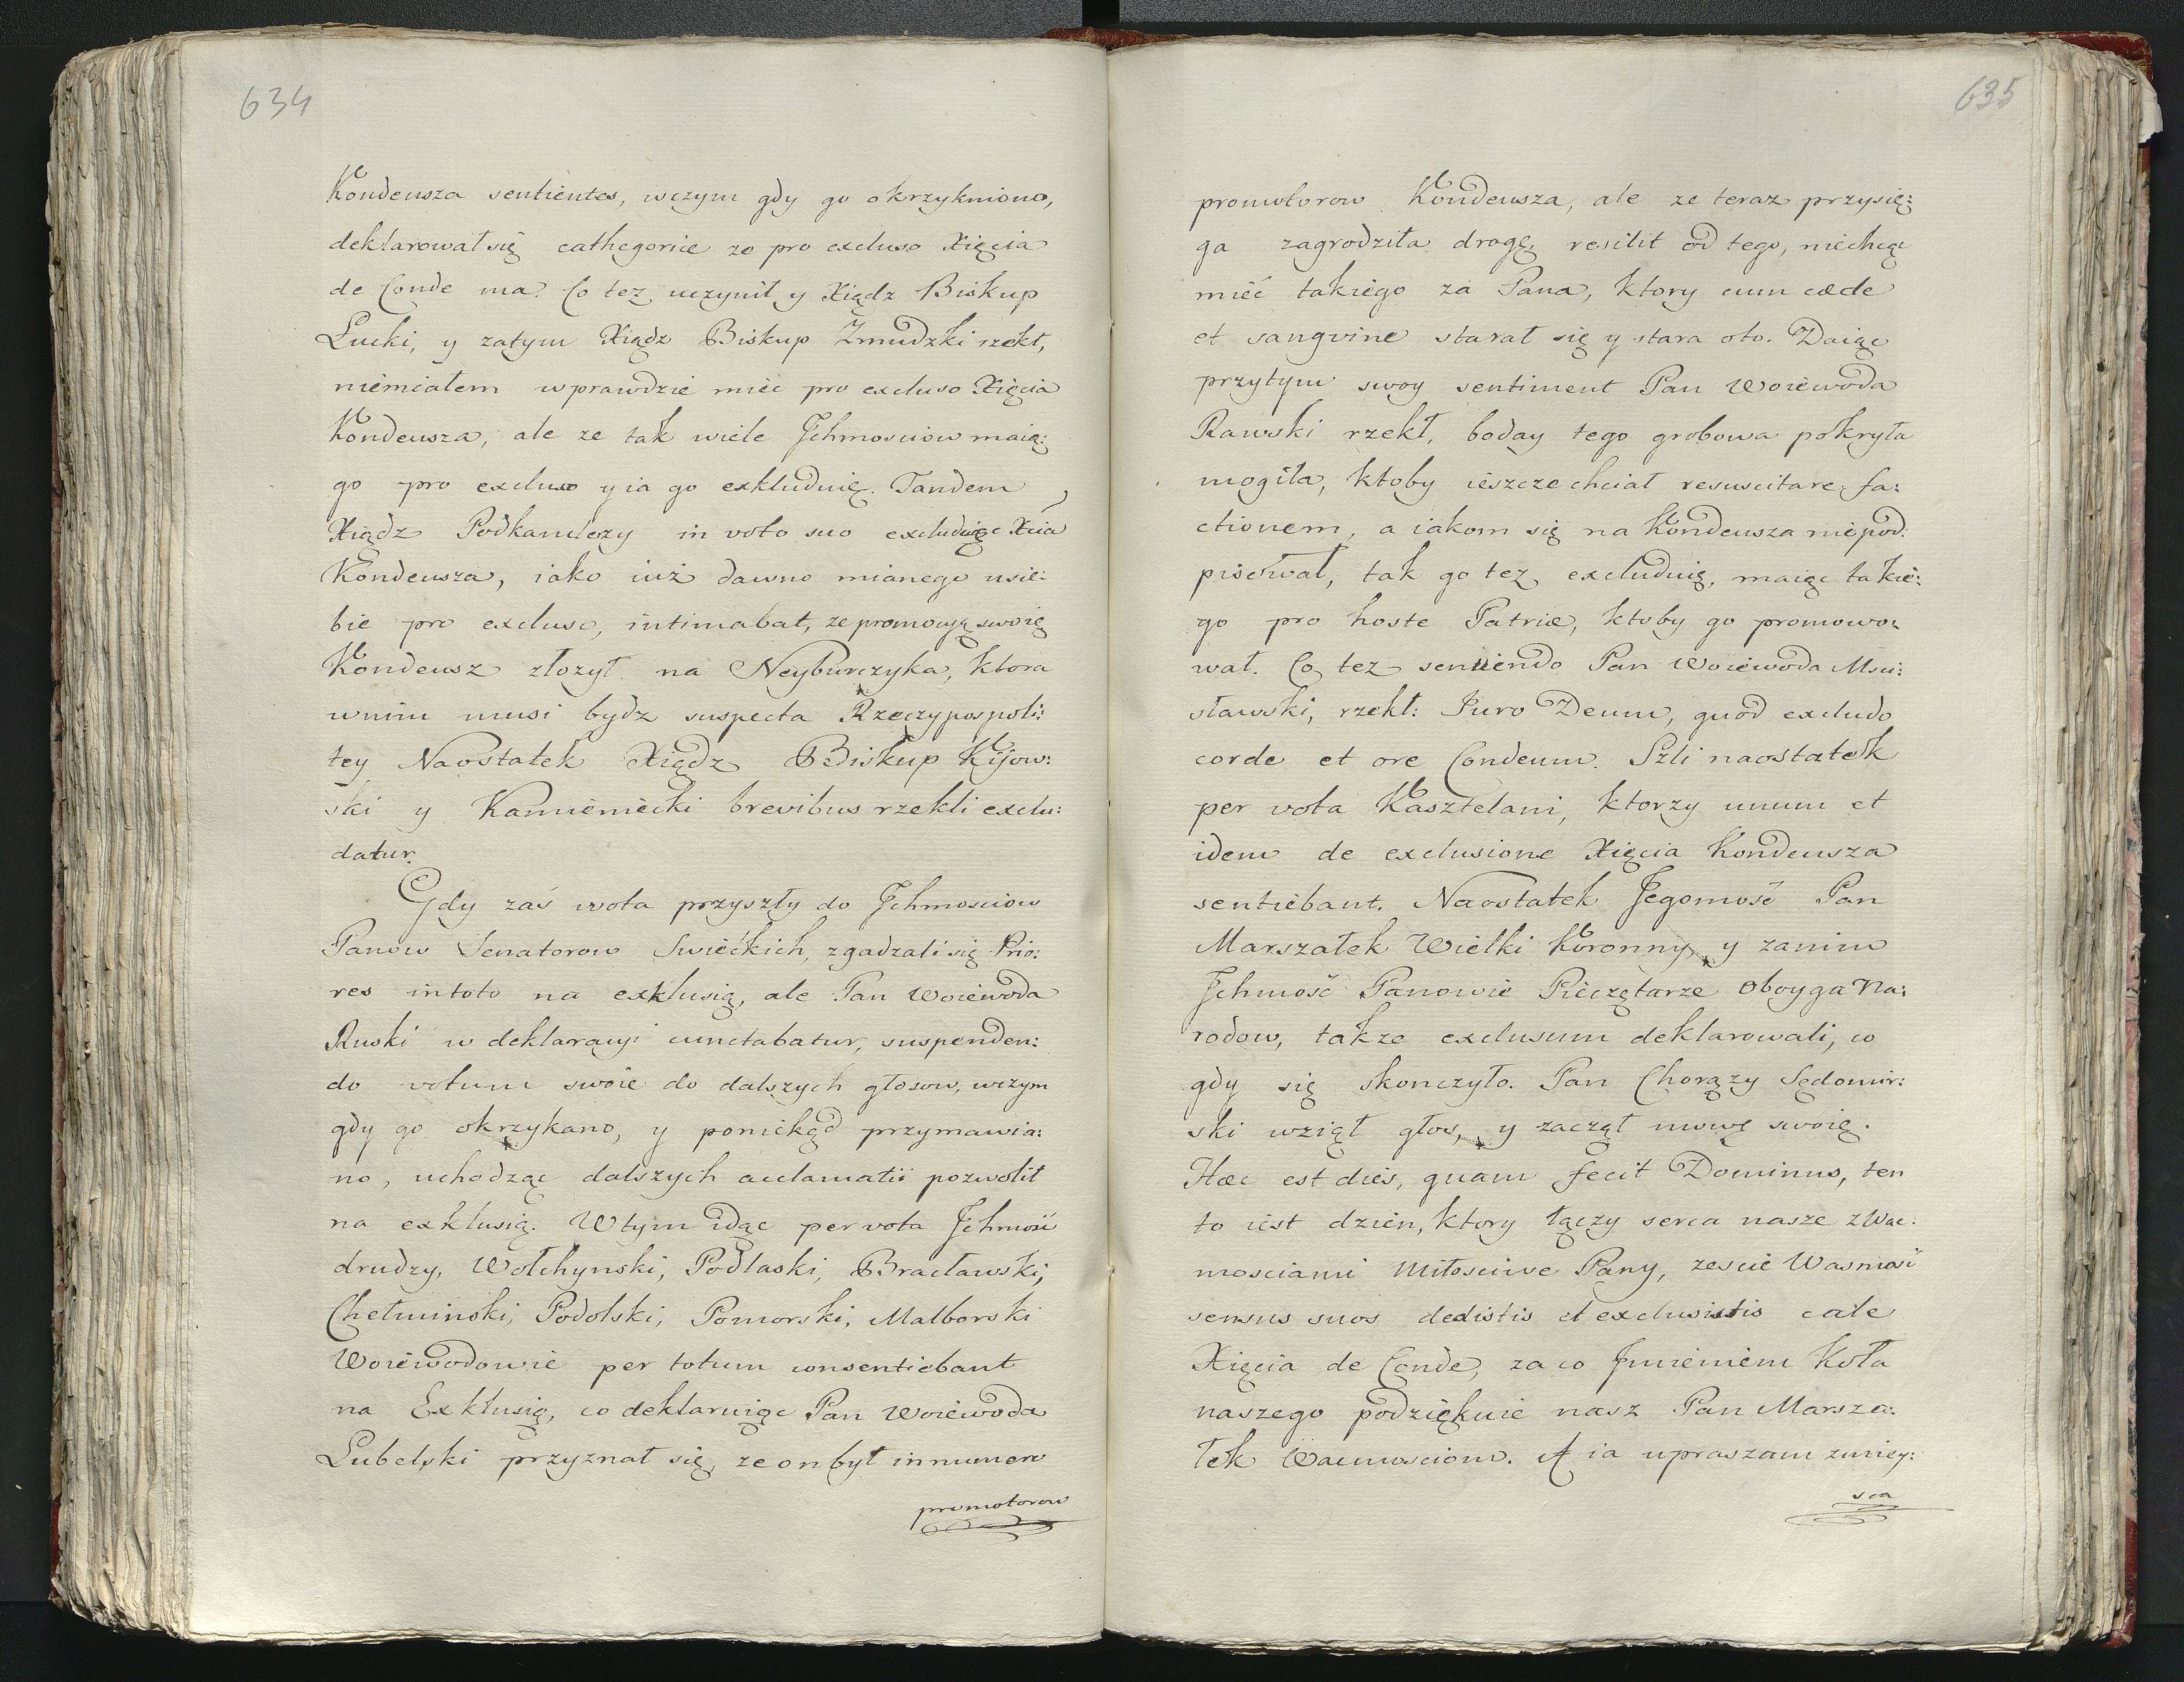 634
Kondeusza sentientes, wczym gdy go okrzykniono,
deklarował się cathegorice ze pro excluso Xięcia
de Conde ma. Co tez uczynił y Xiądz Biskup
Łucki, y zatym Xiądz Biskup Zmudzki rzekł,
niemiałem wprawdzie miec pro excluso Xięcia
Kondeusza, ale ze tak wiele Jchmosciow maią:
go pro excluso y ia go exkluduię. Tandem
Xiądz Podkanclerzy in voto suo excluduiąc Xcia
Kondeusza, iako iuż dawno mianego usie:
bie pro excluso, intimabat, ze promocyą swoię
Kondeusz złozył na Neyburczyka, ktora
wnim musi bydz suspecta Rzeczypospoli:
tey Naostatek Xiądz Biskup Kijow:
ski y Kamieniecki brevibus rzekli exclu:
datur.
Gdy zaś wota przyszły do Jchmosciow
Panow Senatorow Swieckich, zgadzali się Prio:
res intoto na exklusią, ale Pan Woiewoda
Ruski w deklaracyi cunctabatur, suspenden:
do votum swoie do dalszych głosow, wczym
gdy go okrzykano, y poniekąd przymawia:
no, uchodząc dalszych acclamatii pozwolił
na exklusią. Wtym idąc per vota Jchmość
drudzy, Wołchynski, Podlaski, Bracławski,
Chełminski, Podolski, Pomorski, Malborski
Woiewodowie per totum consentiebant
na Exklusią, co deklaruiąc Pan Woiewoda
Lubelski przyznał się, ze on był in numero
promotorow
635
promotorow Kondeusza, ale ze teraz przysię:
ga zagrodziła drogę, resilit od tego, niechcąc
mieć takiego za Pana, ktory cum cæde
et sangvine starał się y stara oto. Daiąc
przytym swoy sentiment Pan Woiewoda
Rawski rzekł, boday tego grobowa pokryła
mogiła, ktoby ieszcze chciał resuscitare fa:
ctionem, a iakom się na Kondeusza niepod:
pisował, tak go tez excluduię, maiąc takie:
go pro hoste Patriæ, ktoby go promowo:
wał. Co tez sentiendo Pan Woiewoda Msci:
sławski, rzekł: Juro Deum, quod excludo
corde et ore Condeum. Szli naostatek
per vota Kasztelani, ktorzy unum et
idem de exclusione Xięcia Kondeusza
sentiebant. Naostatek Jegomość Pan
Marszałek Wielki Koronny, y zanim
Jchmość Panowie Pieczętarze Oboyga Na:
rodow, takze exclusum deklarowali, co
gdy się skonczyło. Pan Chorązy Sędomir:
ski wziął głos, y zaczął mowę swoię.
Hæc est dies, quam fecit Dominus, ten
to iest dzien, ktory łączy serca nasze z Wac:
mosciami Miłosciwe Pany, zescie Wasmość
sensus suos dedistis et exclusistis cale
Xięcia de Conde, za co Jmieniem Koła
naszego podziękuie nasz Pan Marsza:
łek Wacmosciom. A ia upraszam zmiey:
sca